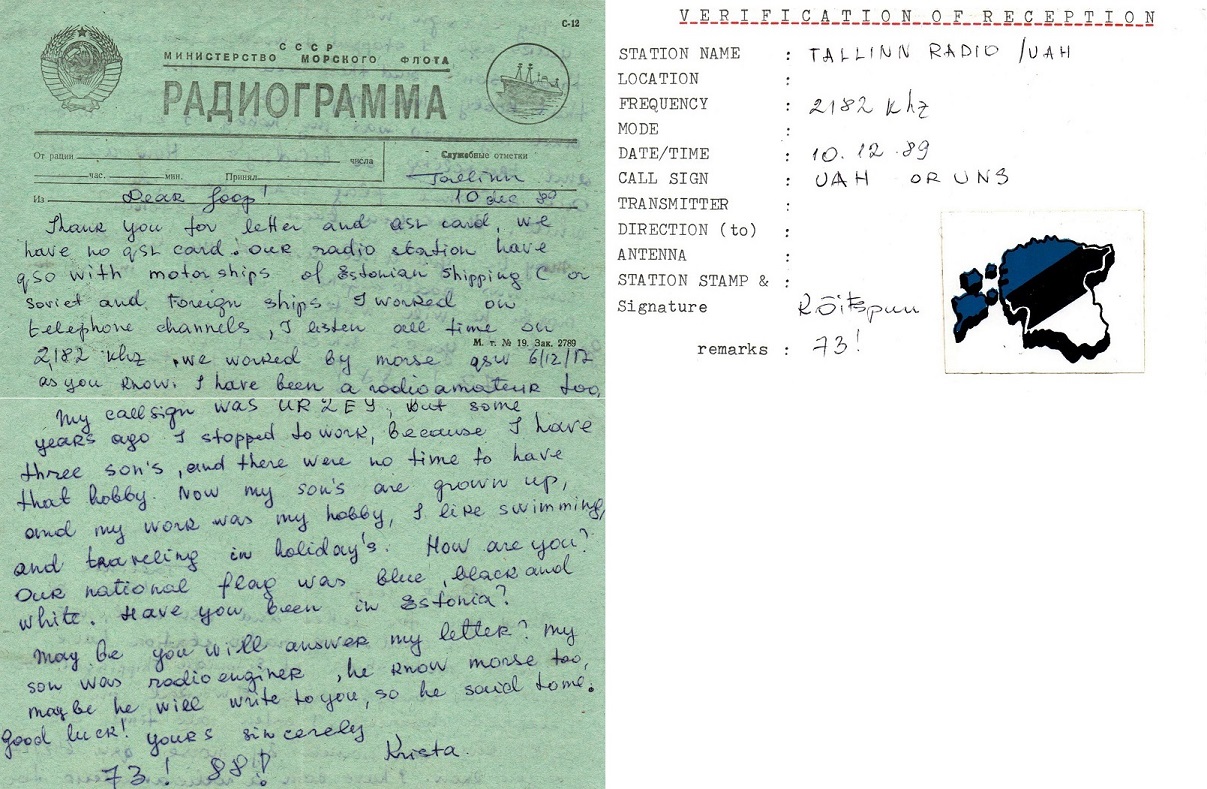 С-12
СССР
МИНИСТЕРСТВО МОРСКОГО ФЛОТА
РАДИОГРАММА
От рации числа
час. мин. Принял
Служебные отметки
Tallinn
Из Dear Joop! 10 dec 89
Thank you for letter and QSL card, we
have no QSL card. Our radio station have
qso with motorships of Estonian Shipping C or
Soviet and Foreign ships I worked on
telephone channels, I listen all time on
М. т. № 19. Зак. 2789
2182 khz . we worked by morse qsw 6/12/17
as you know. I have been a radioamateur too,
My callsign was UR2EY, but some
years ago I stopped to work, because I have
three son's, and there were no time to have
that hobby. Now my son's are grown up,
and my work was my hobby, I like swimming,
and traveling in holiday's. How are you?
Our national flag was blue, black and
white. Have you been in Estonia?
May be you will answer my letter? My
son was radio enginer, he know morse too,
maybe he will write to you, so he said to me.
Good luck! Yours sincerely
Krista.
73! 88!
VERIFICATION OF RECEPTION
STATION NAME : TALLINN RADIO /UAH
LOCATION :
FREQUENCY : 2182 khz
MODE :
DATE/TIME : 10.12.89
CALL SIGN : UAH OR UNS
TRANSMITTER :
DIRECTION (to) :
ANTENNA :
STATION STAMP & :
Signature Rõitspuu
remarks : 73!